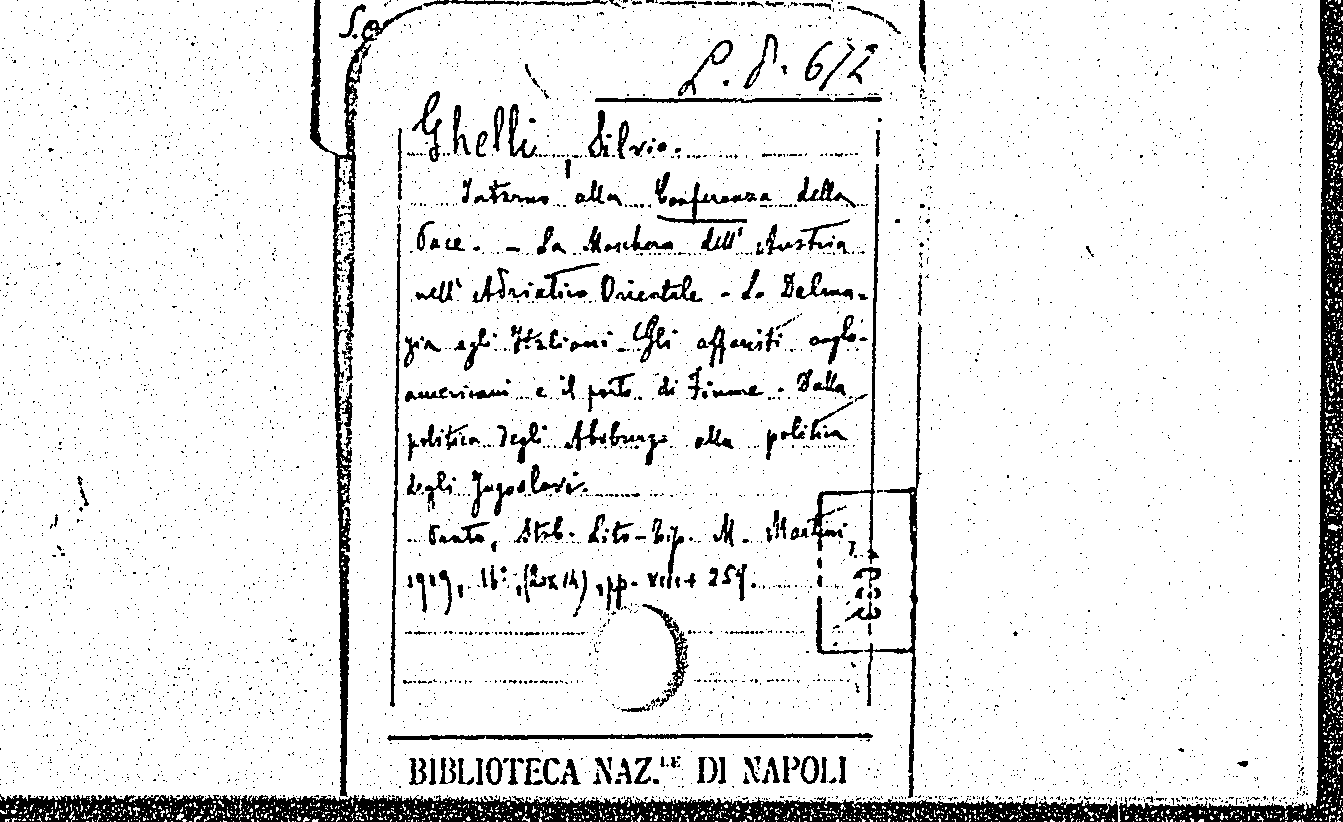 S.Q
L. P. 6/2
Ghelli, Silvio.
Intorno alla Conferenza della
Pace. - La Maschera dell' Austria
nell' Adriatico Orientale - La Dalma-
zia agli Italiani - Gli affaristi anglo-
americani e il porto di Fiume - Dalla
politica degli Absburgo alla politica
degli Jugoslavi.
Prato, Stab. Lito-Tip. M. Martini,
1919, 16°, (20x14), pp. VIII + 259.
BIBLIOTECA NAZ.LE DI NAPOLI